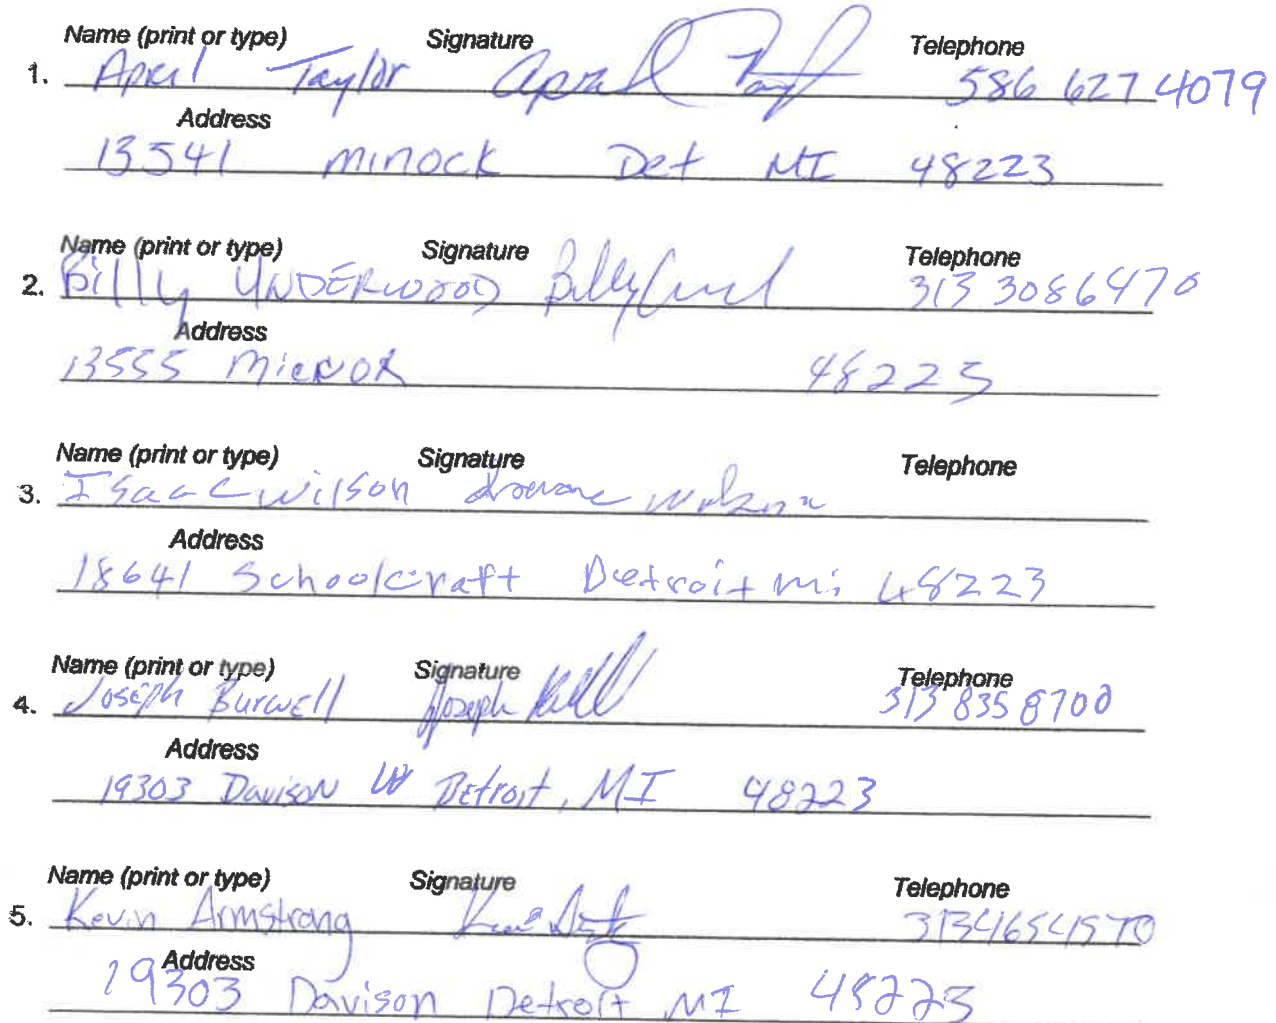 Name (print or type) Signature Telephone
1. April Taylor April Taylor 586 627 4079
Address
13541 minock Det MI 48223
Name (print or type) Signature Telephone
2. Billy UNDERWOOD Billy 313 3086470
Address
13555 MieNOR 48223
Name (print or type) Signature Telephone
3. Isaac wilson
Address
18641 Schoolcraft Detroit mi 48223
Name (print or type) Signature Telephone
4. Joseph Burwell Joseph 313 835 8700
Address
19303 Davison W Detroit, MI 48223
Name (print or type) Signature Telephone
5. Kevin Armstrong
Address
19303 Davison Detroit MI 48223